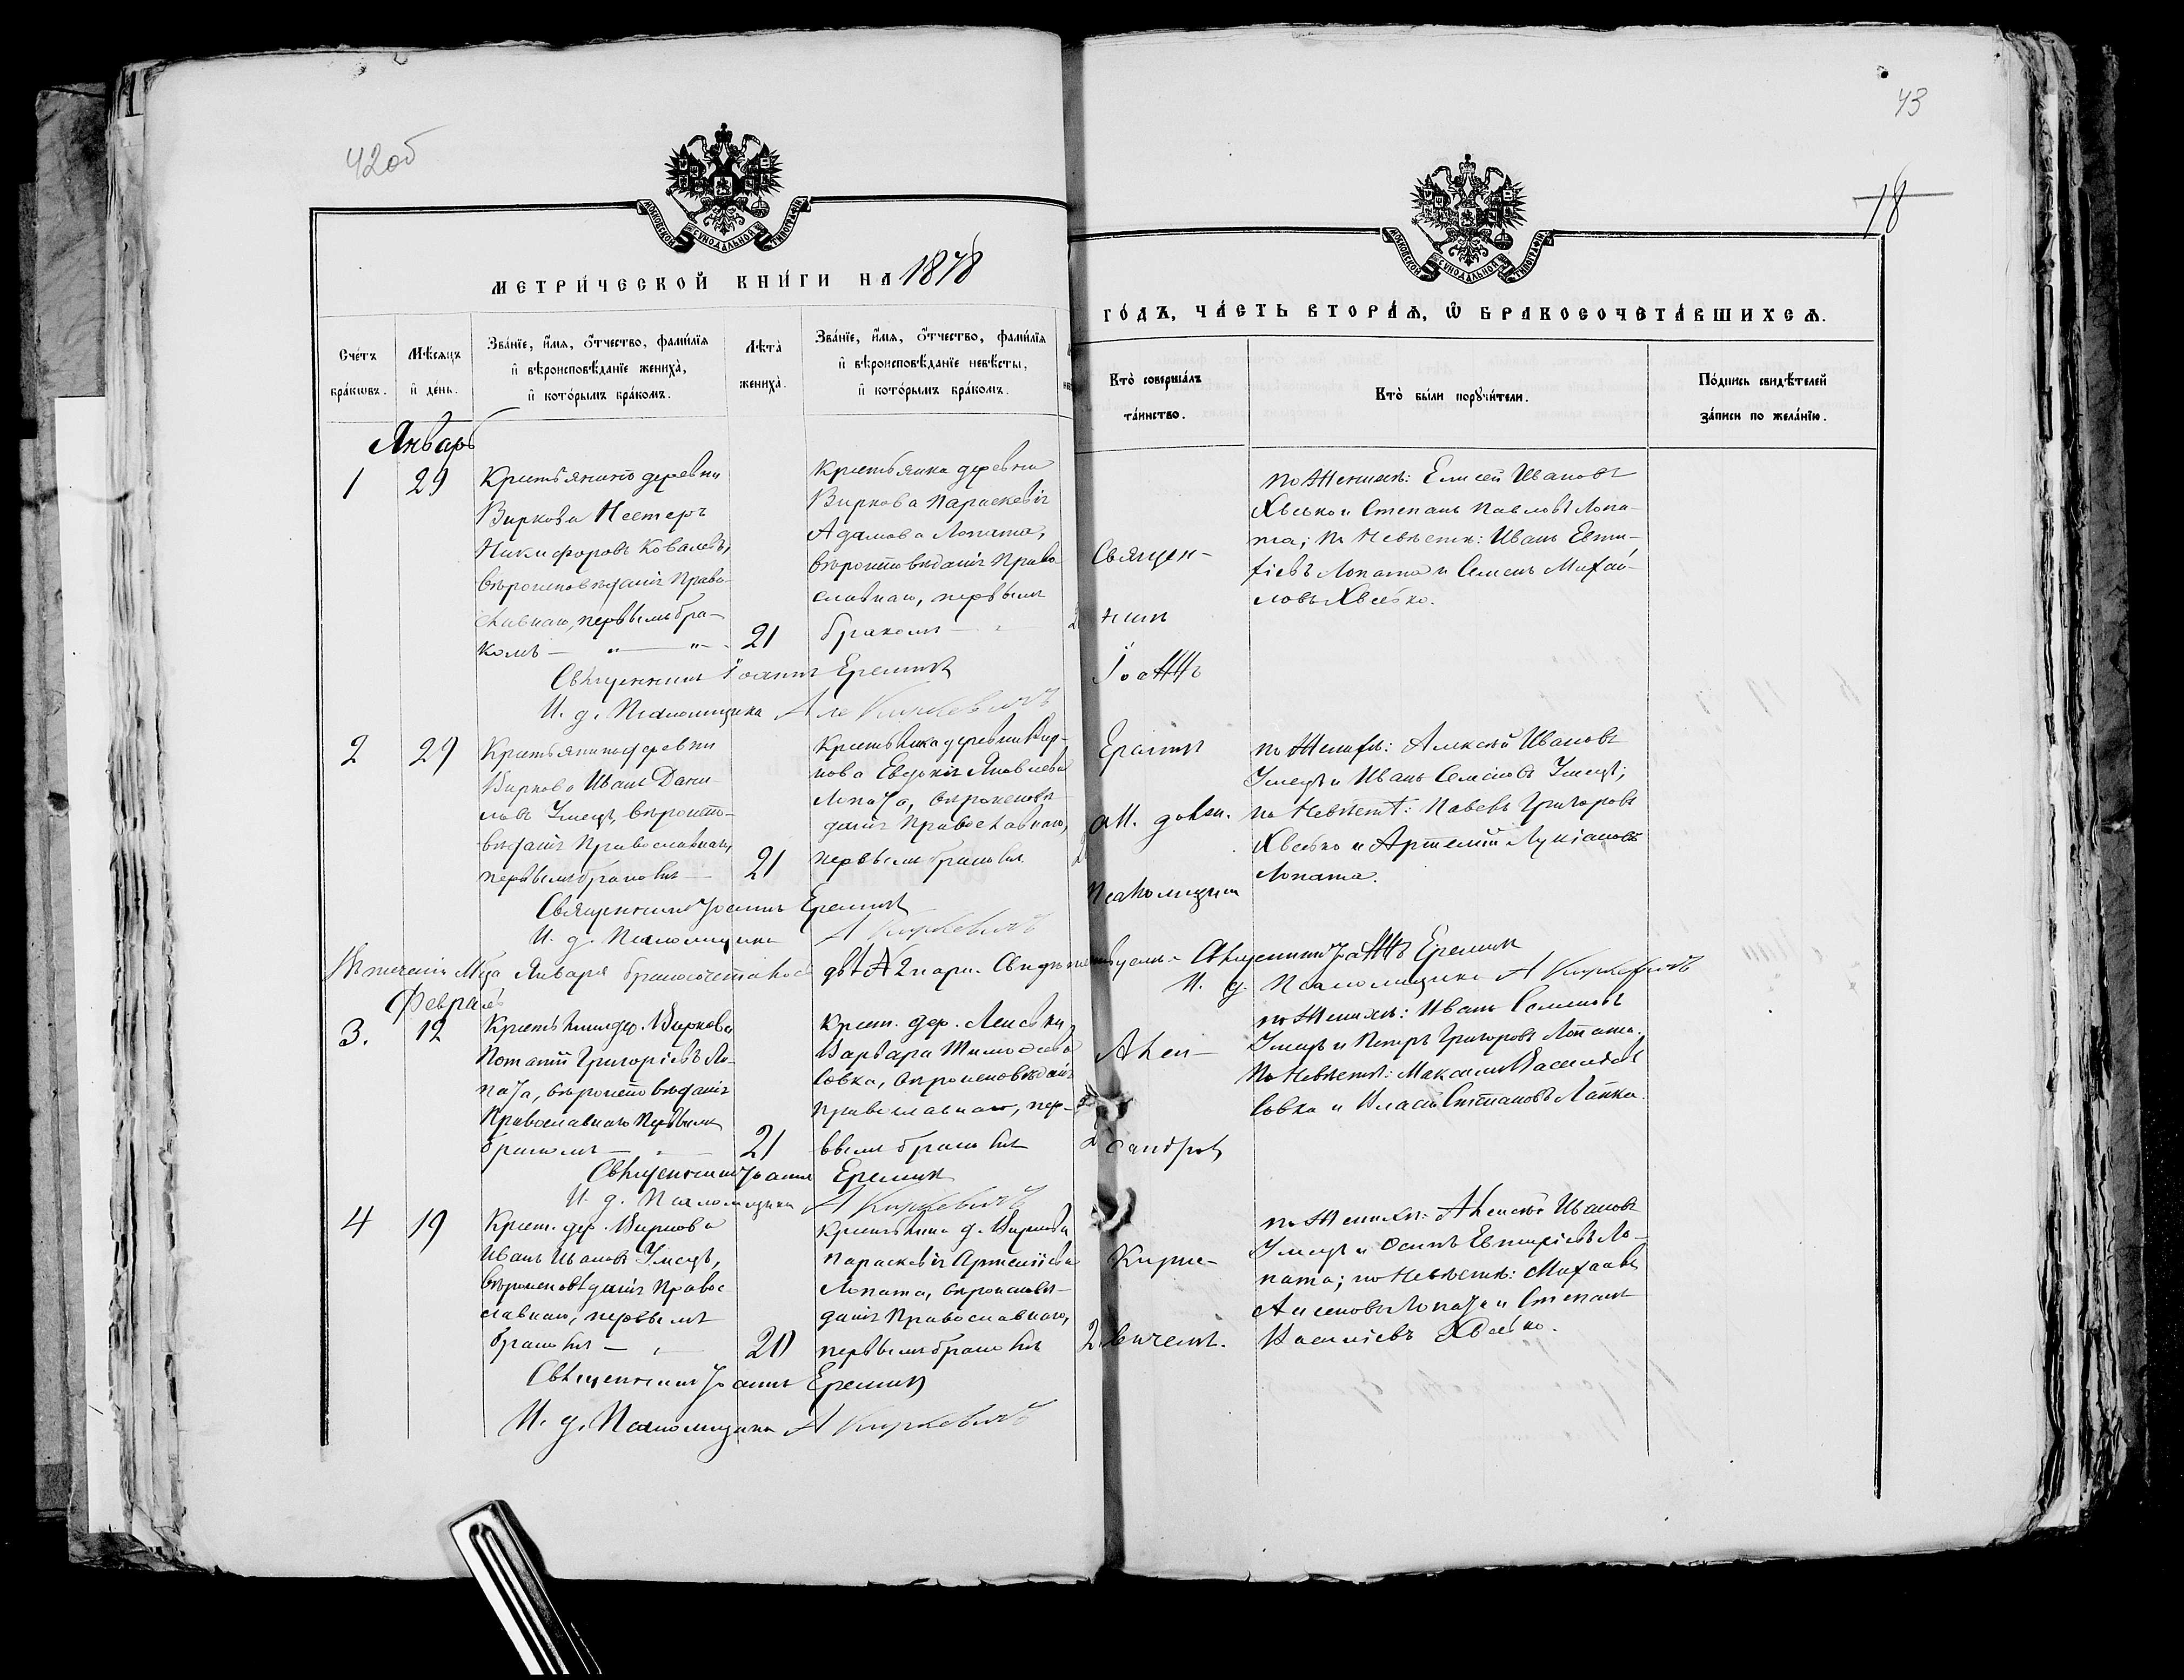 42об
43
18
МОСКОВСКОЙ СѴНОДАЛЬНОЙ ТИПОГРАФІИ
МОСКОВСКОЙ СѴНОДАЛЬНОЙ ТИПОГРАФІИ
МЕТРИ́ЧЕСКОЙ КНИ́ГИ НА 1878
ГО́ДЪ, ЧА́СТЬ ВТОРА́Ѧ, Ѽ БРАКОСОЧЕТА́ВШИХСѦ.
Сче́тъ
бра́кѡвъ.
Мѣ́сяцъ
и҆ де́нь.
Зва́нїе, и҆́мѧ, ѻ҆́тчество, фами́лїѧ
и҆ вѣроисповѣ́данїе жениха̀,
и҆ кото́рымъ бра́комъ.
Лѣта̀
жениха̀.
Зва́нїе, и҆́мѧ, ѻ҆́тчество, фами́лїѧ
и҆ вѣроисповѣ́данїе невѣ́сты,
и҆ кото́рымъ бра́комъ.
Кто̀ соверша́лъ
та́инство.
Кто̀ бы́ли порꙋчи́тели.
По́дпись свидѣ́телей
за́писи по жела́нїю.
Январь
1
29
Крестьянинъ деревни
Виркова Нестеръ
Никифоровъ Ковалевъ,
вѣроисповѣданія Право-
славнаго, первымъ бра-
комъ — " — "
21
Крестьянка деревни
Виркова Параскевія
Адамова Лопата,
вѣроисповѣданія Право-
славнаго, первымъ
бракомъ — "
2
по Женихѣ: Елисей Ивановъ
Хвесько и Степанъ Павловъ Лопа-
та; по Невѣстѣ: Иванъ Евти-
фіевъ Лопата и Семенъ Михай-
ловъ Хвесько.
Священникъ Іоаннъ Еремичъ
И. д. Псаломщика Але Киркевичъ
2
29
Крестьянинъ деревни
Виркова Иванъ Дани-
ловъ Умецъ, вѣроиспо-
вѣданія Православнаго,
первымъ бракомъ —
21
Крестьянка деревни Вир-
кова Евдокія Яковлева
Лопата, вѣроисповѣ-
данія Православнаго,
первымъ бракомъ
2
по Женихѣ: Алексѣй Ивановъ
Умецъ и Иванъ Семеновъ Умецъ;
по Невѣстѣ: Павелъ Григоровъ
Хвесько и Артемій Лукіановъ
Лопата.
Священникъ Іоаннъ Еремичъ
И. д. Псаломщика А Киркевичъ
Въ теченіи М-ца Января бракосочеталось двѣ 2 пары. Свидѣтельствуемъ. Священникъ Іоаннъ Еремичъ
И. д. Псаломщика А Киркевичъ
Февраль
3.
12
Крестьянинъ дер. Виркова
Потапій Григоріевъ Ло-
пата, вѣроисповѣданія
Православнаго Первымъ
бракомъ — " —
21
Крест. дер. Лисевки,
Варвара Тимофеева
Совка, вѣроисповѣданія
Православнаго, пер-
вымъ бракомъ
2
по Женихѣ: Иванъ Семеновъ
Умецъ и Петръ Григоровъ Лопата.
По Невѣстѣ: Максимъ Васильевъ
Совка и Власъ Степановъ Лапка.
Священникъ Іоаннъ Еремичъ
И. д. Псаломщика А Киркевичъ
4
19
Крест. дер. Виркова
Иванъ Ивановъ Умецъ,
вѣроисповѣданія Право-
славнаго, первымъ
бракомъ — " —
20
Крестьянка д. Виркова
Параскевія Артеміева
Лопата, вѣроисповѣ-
данія Православнаго,
первымъ бракомъ
2
по Женихѣ: Алексѣй Ивановъ
Умецъ и Осипъ Евтифіевъ Ло-
пата; по Невѣстѣ: Михаилъ
Аксеновъ Лопата и Степанъ
Василіевъ Хвесько.
Священникъ Іоаннъ Еремичъ
И. д. Псаломщика А Киркевичъ
Священ-
никъ
Іоаннъ
Еремичъ
съ И. долж.
Псаломщика
Алек-
сандромъ
Кирке-
вичемъ.